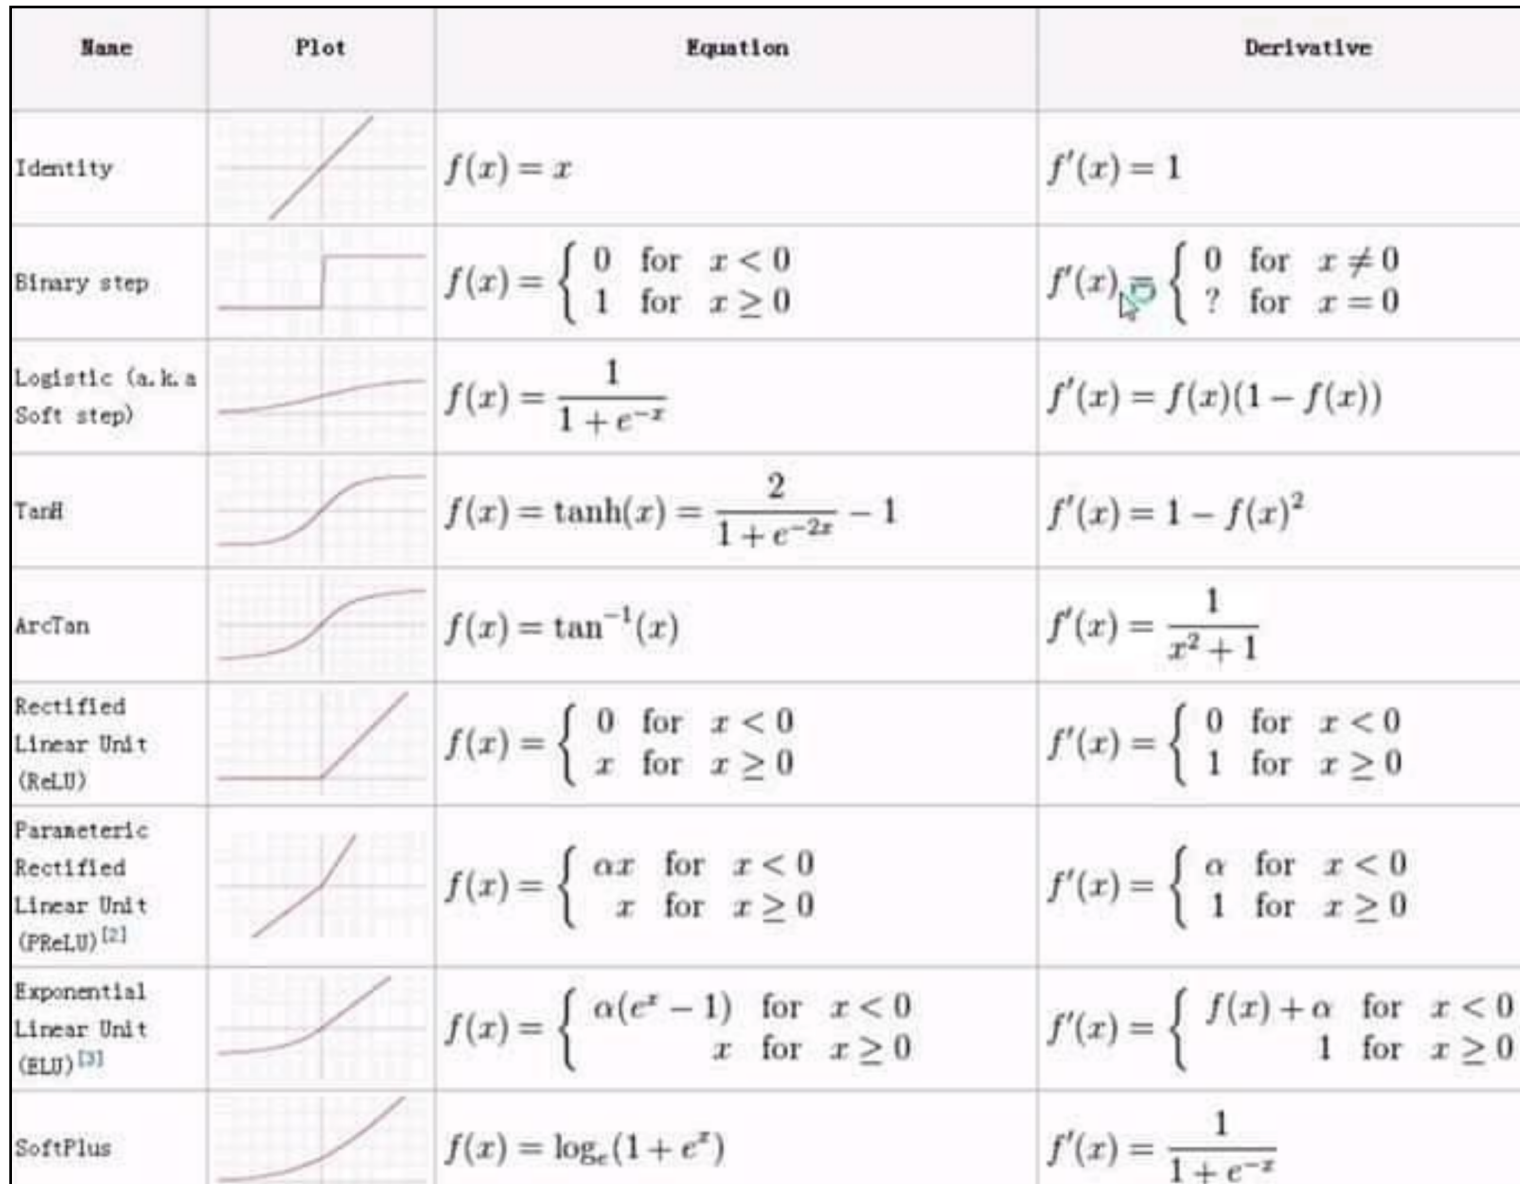 Name Plot Equation Derivative
Identity f(x) = x f'(x) = 1
Binary step f(x) = { 0 for x < 0 f'(x) = { 0 for x ≠ 0
1 for x ≥ 0 ? for x = 0
Logistic (a.k.a
Soft step) f(x) = 1 / (1 + e^{-x}) f'(x) = f(x)(1 − f(x))
TanH f(x) = tanh(x) = 2 / (1 + e^{-2x}) − 1 f'(x) = 1 − f(x)^2
ArcTan f(x) = tan^{-1}(x) f'(x) = 1 / (x^2 + 1)
Rectified
Linear Unit
(ReLU) f(x) = { 0 for x < 0 f'(x) = { 0 for x < 0
x for x ≥ 0 1 for x ≥ 0
Parameteric
Rectified
Linear Unit
(PReLU)[2] f(x) = { αx for x < 0 f'(x) = { α for x < 0
x for x ≥ 0 1 for x ≥ 0
Exponential
Linear Unit
(ELU)[3] f(x) = { α(e^x − 1) for x < 0 f'(x) = { f(x) + α for x < 0
x for x ≥ 0 1 for x ≥ 0
SoftPlus f(x) = log_e(1 + e^x) f'(x) = 1 / (1 + e^{-x})